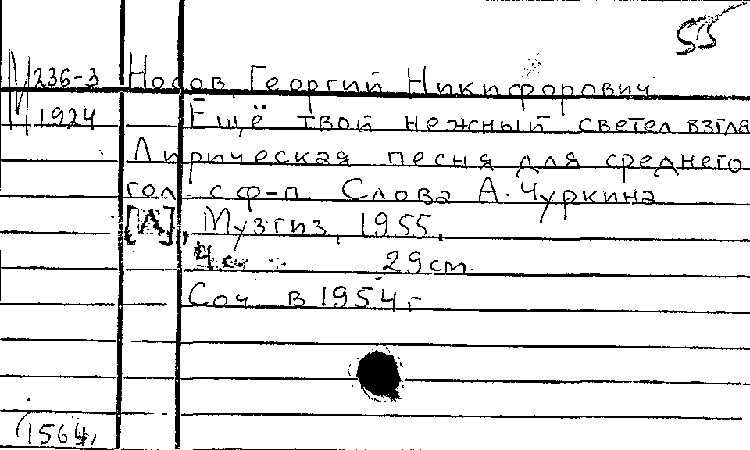 55
М 236-3 Носов Георгий Никифорович
1924 Ещё твой нежный светел взгля
Лирическая песня для среднего
гол с ф-п Слова А. Чуркина
[Л], Музгиз, 1955.
4 с. 29 см
Соч в 1954 г